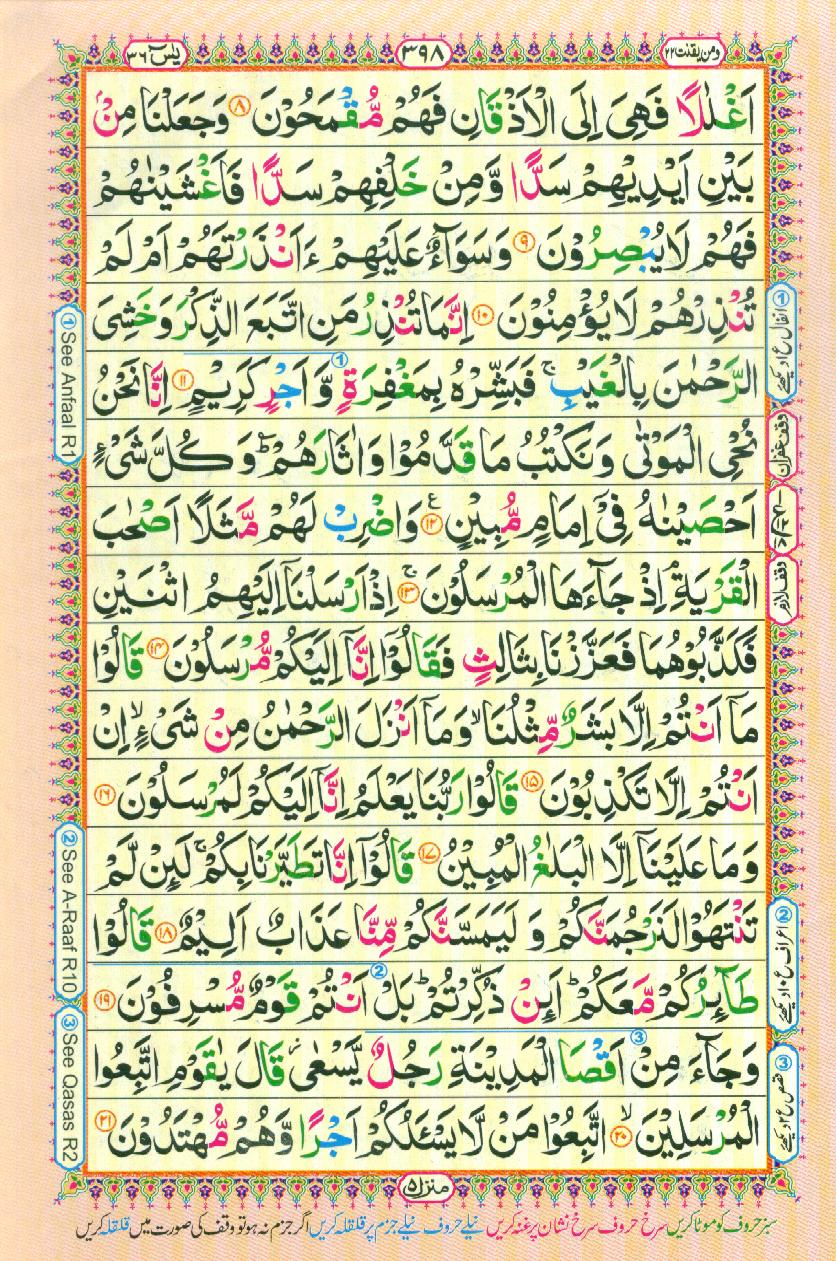 ومن یقنت ۲۲
۳۹۸
یٰسٓ ۳۶
اَغْلٰلًا فَهِیَ اِلَی الْاَذْقَانِ فَهُمْ مُّقْمَحُوْنَ ۸ وَجَعَلْنَا مِنْۢ
بَیْنِ اَیْدِیْهِمْ سَدًّا وَّمِنْ خَلْفِهِمْ سَدًّا فَاَغْشَیْنٰهُمْ
فَهُمْ لَا یُبْصِرُوْنَ ۹ وَسَوَآءٌ عَلَیْهِمْ ءَاَنْذَرْتَهُمْ اَمْ لَمْ
تُنْذِرْهُمْ لَا یُؤْمِنُوْنَ ۱۰ اِنَّمَا تُنْذِرُ مَنِ اتَّبَعَ الذِّكْرَ وَخَشِیَ
الرَّحْمٰنَ بِالْغَیْبِ ۚ فَبَشِّرْهُ بِمَغْفِرَةٍ ① وَّاَجْرٍ كَرِیْمٍ ۱۱ اِنَّا نَحْنُ
نُحْیِ الْمَوْتٰی وَنَكْتُبُ مَا قَدَّمُوْا وَاٰثَارَهُمْ ؕ وَكُلَّ شَیْءٍ
اَحْصَیْنٰهُ فِیْۤ اِمَامٍ مُّبِیْنٍ ۱۲ ع وَاضْرِبْ لَهُمْ مَّثَلًا اَصْحٰبَ
الْقَرْیَةِ ۘ اِذْ جَآءَهَا الْمُرْسَلُوْنَ ۱۳ ۚ اِذْ اَرْسَلْنَاۤ اِلَیْهِمُ اثْنَیْنِ
فَكَذَّبُوْهُمَا فَعَزَّزْنَا بِثَالِثٍ فَقَالُوْۤا اِنَّاۤ اِلَیْكُمْ مُّرْسَلُوْنَ ۱۴ قَالُوْا
مَاۤ اَنْتُمْ اِلَّا بَشَرٌ مِّثْلُنَا ۙ وَمَاۤ اَنْزَلَ الرَّحْمٰنُ مِنْ شَیْءٍ ۙ اِنْ
اَنْتُمْ اِلَّا تَكْذِبُوْنَ ۱۵ قَالُوْا رَبُّنَا یَعْلَمُ اِنَّاۤ اِلَیْكُمْ لَمُرْسَلُوْنَ ۱۶
وَمَا عَلَیْنَاۤ اِلَّا الْبَلٰغُ الْمُبِیْنُ ۱۷ قَالُوْۤا اِنَّا تَطَیَّرْنَا بِكُمْ ۚ لَئِنْ لَّمْ
تَنْتَهُوْا لَنَرْجُمَنَّكُمْ وَ لَیَمَسَّنَّكُمْ مِّنَّا عَذَابٌ اَلِیْمٌ ۱۸ قَالُوْا
طَآئِرُكُمْ مَّعَكُمْ ؕ اَئِنْ ذُكِّرْتُمْ ؕ بَلْ ② اَنْتُمْ قَوْمٌ مُّسْرِفُوْنَ ۱۹
وَجَآءَ مِنْ ③ اَقْصَا الْمَدِیْنَةِ رَجُلٌ یَّسْعٰی ؗ قَالَ یٰقَوْمِ اتَّبِعُوا
الْمُرْسَلِیْنَ ۲۰ ۙ اتَّبِعُوْا مَنْ لَّا یَسْـَٔلُكُمْ اَجْرًا وَّهُمْ مُّهْتَدُوْنَ ۲۱
① انفال ع ۱ دیکھئے
وقف غفران
وقف لازم
② اعراف ع ۱۰ دیکھئے
③ قصص ع ۲ دیکھئے
① See Anfaal R1
② See A-Raaf R10
③ See Qasas R2
منزل ۵
سبز حروف کو موٹا کریں سرخ حروف سرخ نشان پر غنہ کریں نیلے حروف نیلے جزم پر قلقلہ کریں اگر جزم نہ ہو تو وقف کی صورت میں قلقلہ کریں